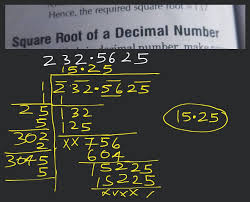 Hence, the required square root =
Square Root of a Decimal Number
decimal number, make
232.5625
15.25
1 232.5625
1
25 132
5 125
302 xx756
2 604
3045 15225
5 15225
xxxx
15.25